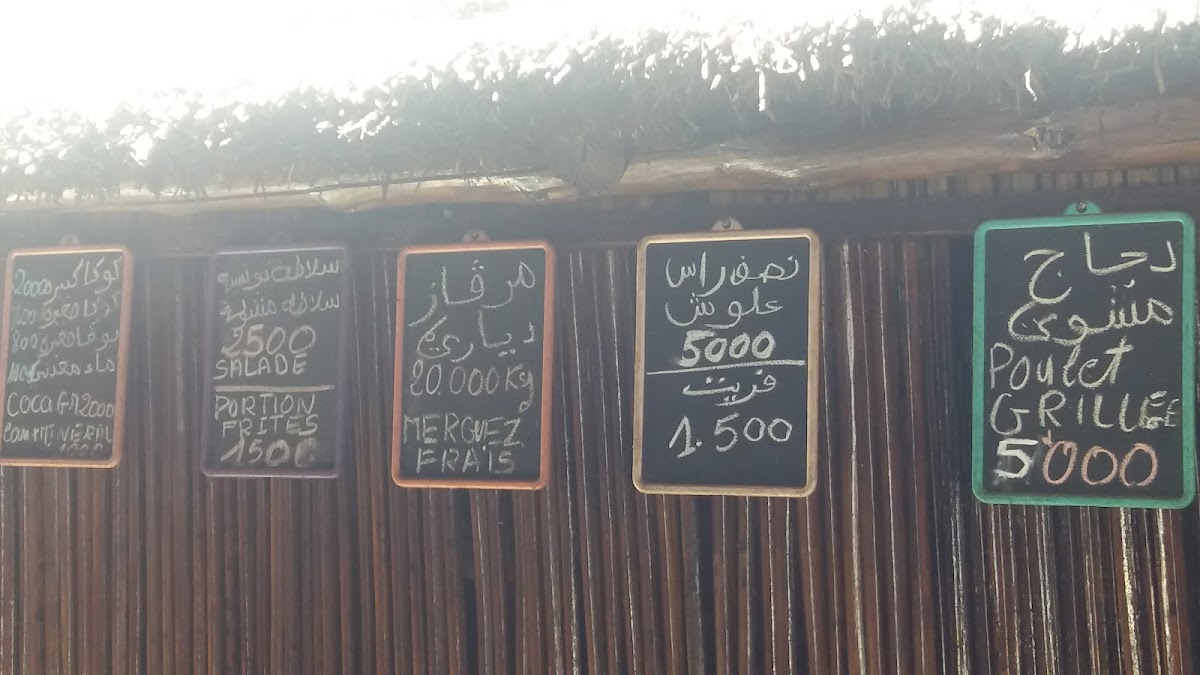 كوكا كبير 2000
كوكا
800
ماء معدني
COCA G.M 2000
MINERAL
سلاطة تونسية
سلاطة مشوية
2500
SALADE
PORTION
FRITES
1500
مرڤاز
دياري
20.000 Kg
MERGUEZ
FRAIS
نصف راس
علوش
5000
فريت
1.500
دجاج
مشوي
Poulet
GRILLEE
5'000